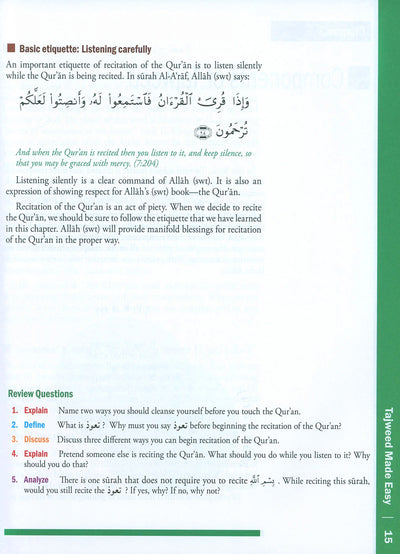 Basic etiquette: Listening carefully
An important etiquette of recitation of the Qur'ān is to listen silently
while the Qur'ān is being recited. In sūrah Al-A'rāf, Allāh (swt) says:
وَإِذَا قُرِئَ ٱلْقُرْءَانُ فَٱسْتَمِعُوا۟ لَهُۥ وَأَنصِتُوا۟ لَعَلَّكُمْ
تُرْحَمُونَ
And when the Qur'an is recited then you listen to it, and keep silence, so
that you may be graced with mercy. (7:204)
Listening silently is a clear command of Allāh (swt). It is also an
expression of showing respect for Allāh's (swt) book—the Qur'ān.
Recitation of the Qur'an is an act of piety. When we decide to recite
the Qur'ān, we should be sure to follow the etiquette that we have learned
in this chapter. Allāh (swt) will provide manifold blessings for recitation
of the Qur'an in the proper way.
Review Questions
1. Explain Name two ways you should cleanse yourself before you touch the Qur'an.
2. Define What is تعوذ ? Why must you say تعوذ before beginning the recitation of the Qur'an?
3. Discuss Discuss three different ways you can begin recitation of the Qur'an.
4. Explain Pretend someone else is reciting the Qur'an. What should you do while you listen to it? Why
should you do that?
5. Analyze There is one sūrah that does not require you to recite بِسْمِ ٱللَّهِ . While reciting this sūrah,
would you still recite the تعوذ ? If yes, why? If no, why not?
Tajweed Made Easy | 15